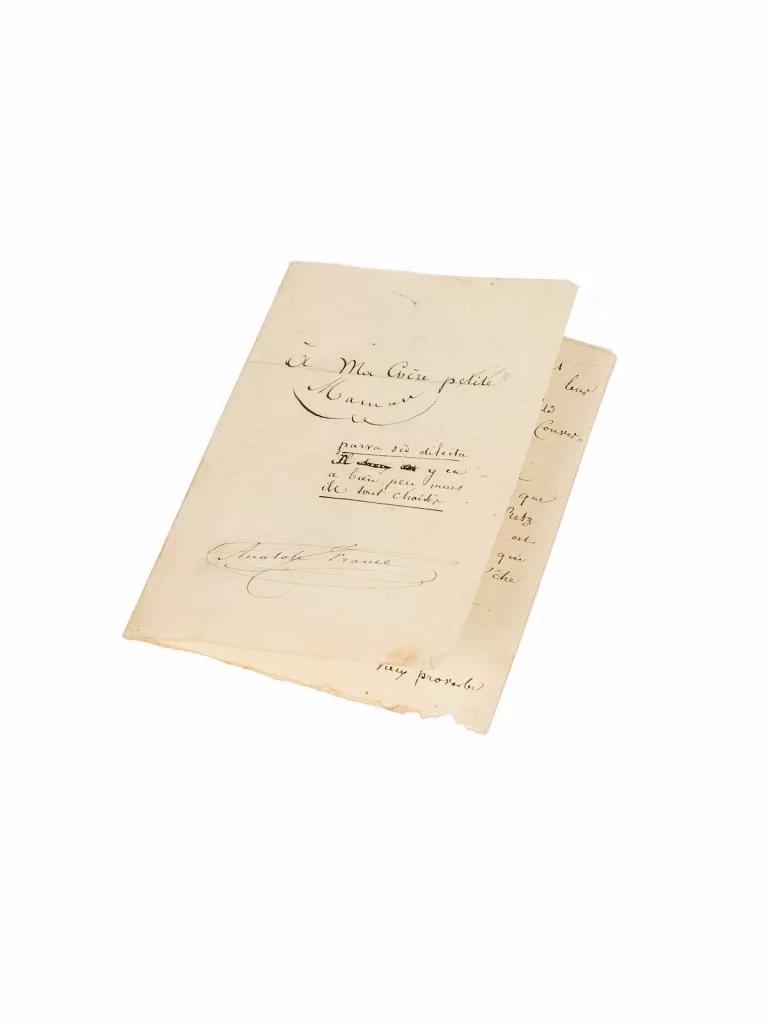 À Ma Chère petite
Maman
parva sed dilecta
Il y en
a bien peu mais
ils sont choisis
Anatole France
leur
Conver=
que
Retz
est
qui
l'être
vieux proverbe